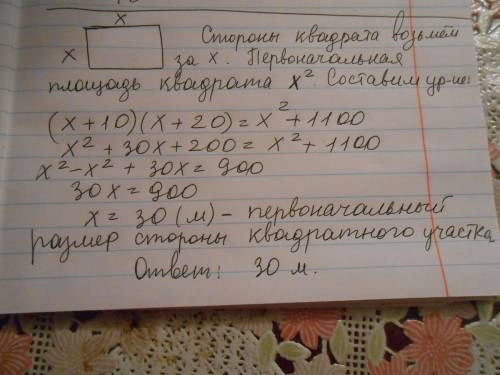 x
x
Стороны квадрата возьмём
за x. Первоначальная
площадь квадрата x². Составим ур-ие:
(x+10)(x+20)=x²+1100
x²+30x+200=x²+1100
x²-x²+30x=900
30x=900
x=30(м)- первоначальный
размер стороны квадратного участка
Ответ: 30 м.